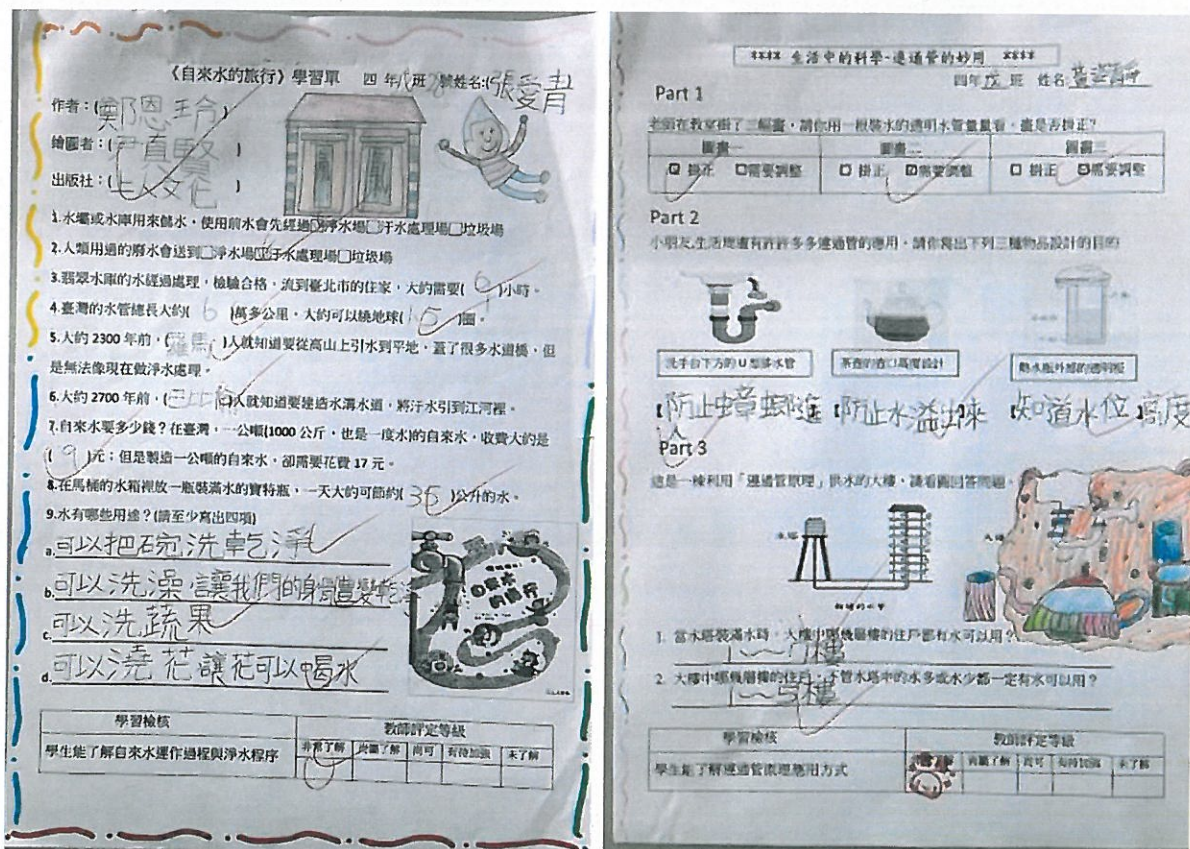 《自來水的旅行》學習單 四 年 班 號姓名:(張愛青)
作者：(鄭恩玲)
繪圖者：(尹真 )
出版社：( 文化 )
1.水壩或水庫用來儲水，使用前水會先經過☑淨水場□汙水處理場□垃圾場
2.人類用過的廢水會送到□淨水場☑汙水處理場□垃圾場
3.翡翠水庫的水經過處理，檢驗合格，流到臺北市的住家，大約需要( 6 )小時。
4.臺灣的水管總長大約( 6 )萬多公里，大約可以繞地球(1.5)圈。
5.大約 2300 年前，(羅馬)人就知道要從高山上引水到平地，蓋了很多水道橋，但
是無法像現在做淨水處理。
6.大約 2700 年前，(巴比倫)人就知道要建造水溝水道，將汙水引到江河裡。
7.自來水要多少錢？在臺灣，一公噸(1000 公斤，也是一度水)的自來水，收費大約是
( 9 )元；但是製造一公噸的自來水，卻需要花費 17 元。
8.在馬桶的水箱裡放一瓶裝滿水的寶特瓶，一天大約可節約( 36 )公升的水。
9.水有哪些用途？(請至少寫出四項)
a.可以把碗洗乾淨
b.可以洗澡 讓我們的身體變乾
c.可以洗蔬果
d.可以澆花讓花可以喝水
自來水的旅行
學習檢核 教師評定等級
非常了解 尚屬了解 尚可 有待加強 未了解
學生能了解自來水運作過程與淨水程序
**** 生活中的科學-連通管的妙用 ****
四年 班 姓名
Part 1
老師在教室掛了三幅畫，請你用一根裝水的透明水管量量看，畫是否掛正？
圖畫一 圖畫二 圖畫三
☑ 掛正 □需要調整 □ 掛正 ☑需要調整 □ 掛正 ☑需要調整
Part 2
小朋友,生活週遭有許許多多連通管的應用，請你寫出下列三種物品設計的目的
洗手台下方的 U 型排水管 茶壺的壺口高度設計 熱水瓶外部的透明板
【防止蟑螂進入】 【防止水溢出來】 【知道水位高度】
Part 3
這是一棟利用「連通管原理」供水的大樓，請看圖回答問題。
水塔
大樓
1. 當水塔裝滿水時，大樓中哪幾層樓的住戶都有水可以用？
1~7樓
2. 大樓中哪幾層樓的住戶，不管水塔中的水多或水少都一定有水可以用？
1~5樓
學習檢核 教師評定等級
了解 尚屬了解 尚可 有待加強 未了解
學生能了解連通管原理應用方式